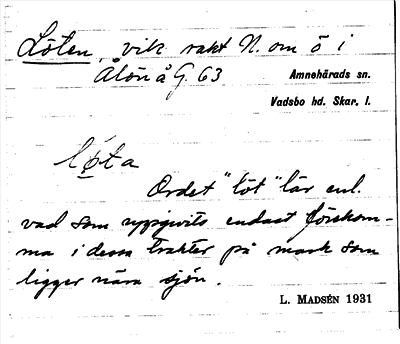 Löten, vik rakt N. om ö i
Ålön å G. 63
Amnehärads sn.
Vadsbo hd. Skar. l.
lø̀ta
Ordet "löt" lär enl.
vad som uppgivits endast förekom-
ma i dessa trakter på mark som
ligger nära sjön.
L. MADSÉN 1931